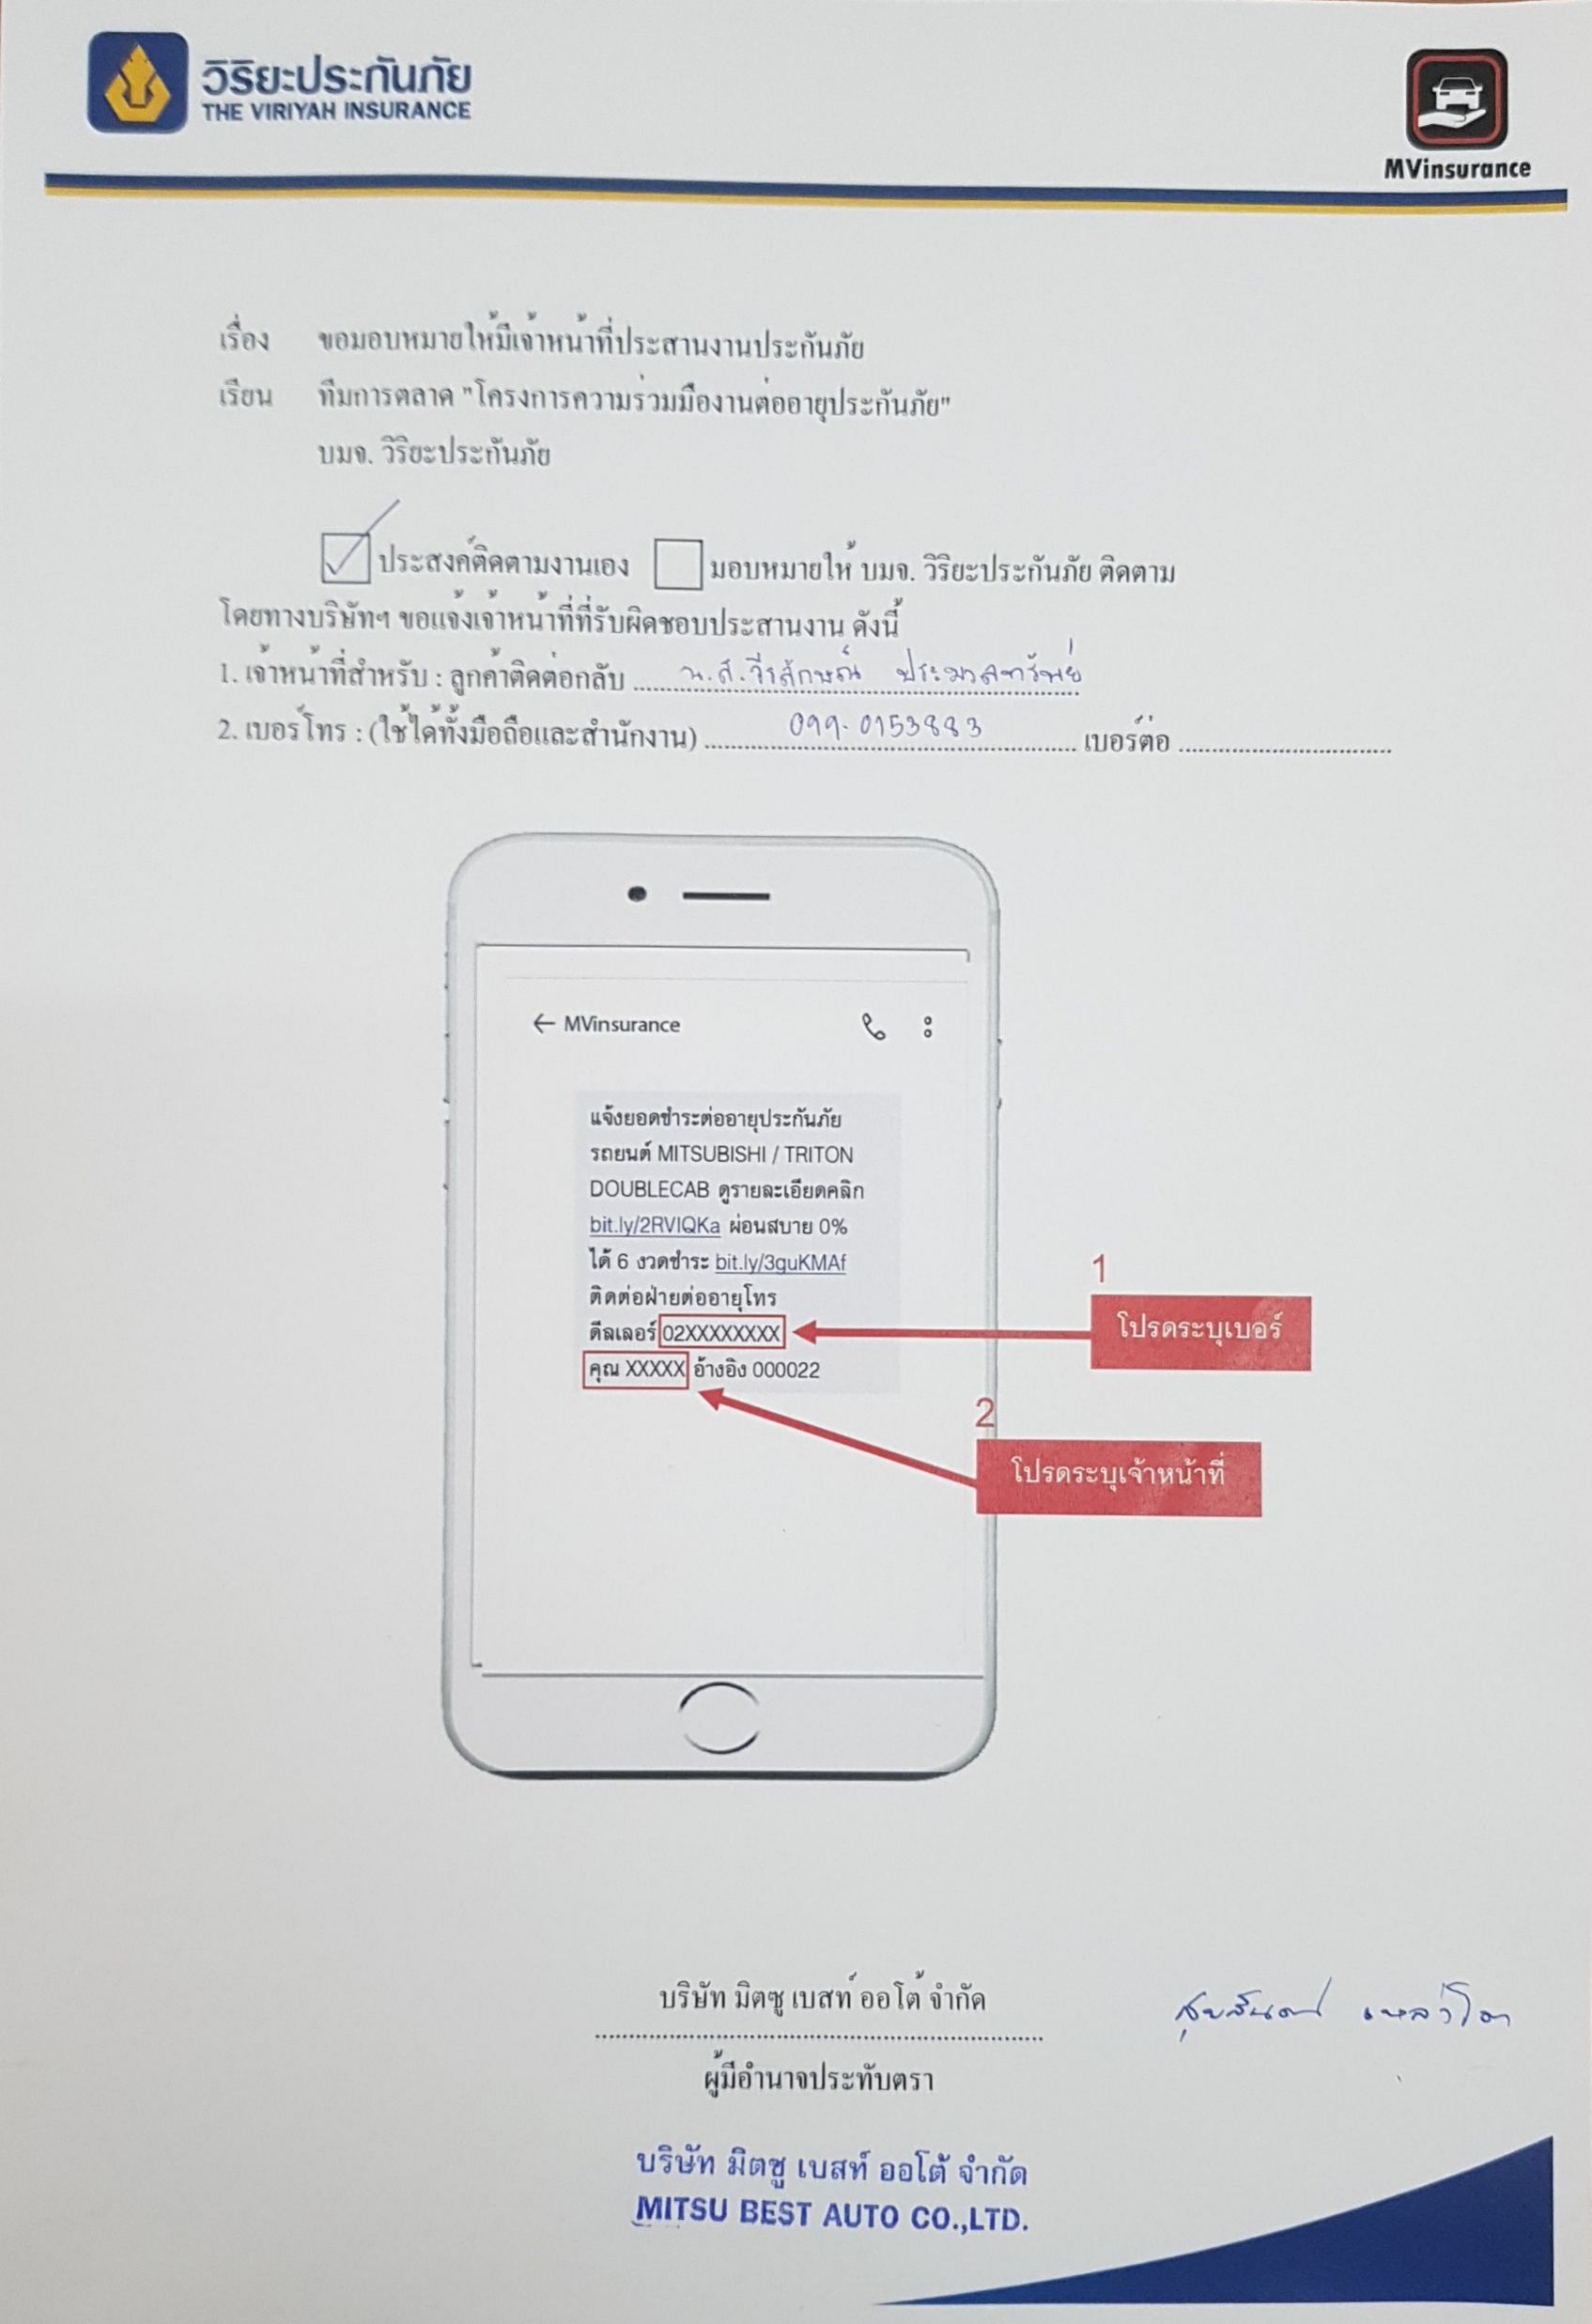 วิริยะประกันภัย
THE VIRIYAH INSURANCE
MVinsurance
เรื่อง ขอมอบหมายให้มีเจ้าหน้าที่ประสานงานประกันภัย
เรียน ทีมการตลาด "โครงการความร่วมมืองานต่ออายุประกันภัย"
บมจ. วิริยะประกันภัย
ประสงค์ติดตามงานเอง มอบหมายให้ บมจ. วิริยะประกันภัย ติดตาม
โดยทางบริษัทฯ ขอแจ้งเจ้าหน้าที่ที่รับผิดชอบประสานงาน ดังนี้
1. เจ้าหน้าที่สำหรับ : ลูกค้าติดต่อกลับ น.ส.วีรลักษณ์ ประมวลทรัพย์
2. เบอร์โทร : (ใช้ได้ทั้งมือถือและสำนักงาน) 099-0153883 เบอร์ต่อ
← MVinsurance
แจ้งยอดชำระต่ออายุประกันภัย
รถยนต์ MITSUBISHI / TRITON
DOUBLECAB ดูรายละเอียดคลิก
bit.ly/2RVIQKa ผ่อนสบาย 0%
ได้ 6 งวดชำระ bit.ly/3guKMAf
ติดต่อฝ่ายต่ออายุโทร
ดีลเลอร์ 02XXXXXXXX
คุณ XXXXX อ้างอิง 000022
1
โปรดระบุเบอร์
2
โปรดระบุเจ้าหน้าที่
บริษัท มิตซู เบสท์ ออโต้ จำกัด
ผู้มีอำนาจประทับตรา
บริษัท มิตซู เบสท์ ออโต้ จำกัด
MITSU BEST AUTO CO.,LTD.